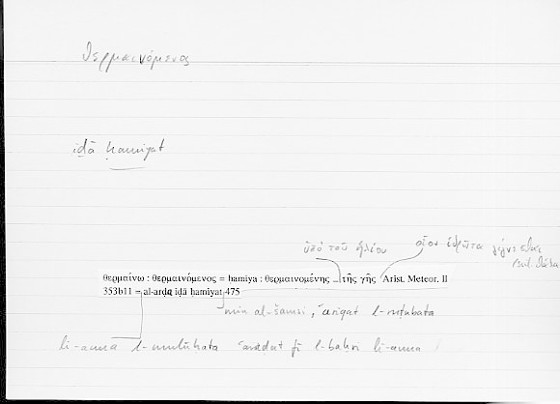 θερμαινόμενος
iḏā ḥamiyat
ὑπὸ τοῦ ἡλίου οἷον ἱδρῶτα γίγνεσθαι
θερμαίνω : θερμαινόμενος = hamiya : θερμαινομένης ... τῆς γῆς Arist. Meteor. II
353b11 = al-arḍa iḏā ḥamiyat 475
min al-šamsi, ʿariqat l-ruṭūbata
li-anna l-mulūḥata fī l-baḥri li-anna